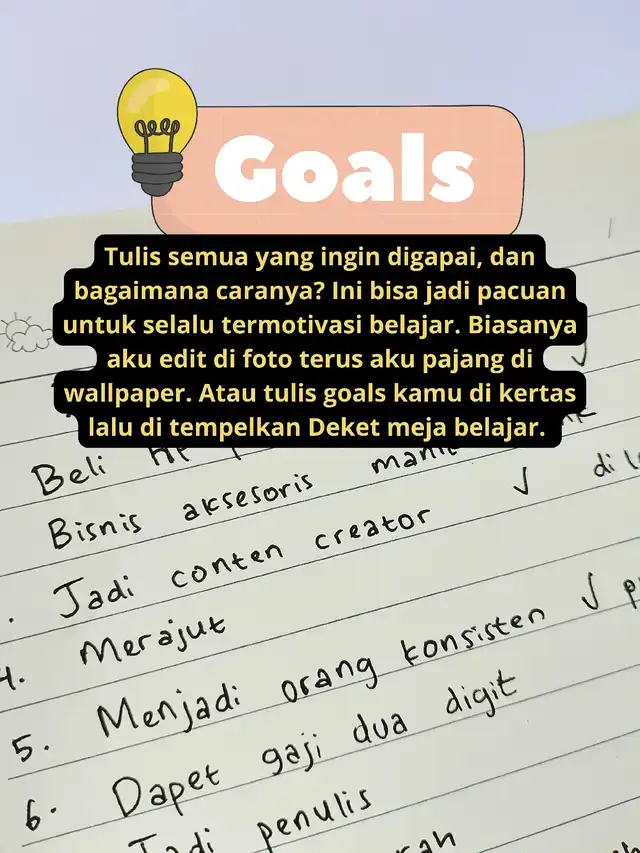 Goals
Tulis semua yang ingin digapai, dan
bagaimana caranya? Ini bisa jadi pacuan
untuk selalu termotivasi belajar. Biasanya
aku edit di foto terus aku pajang di
wallpaper. Atau tulis goals kamu di kertas
lalu di tempelkan Deket meja belajar.
Beli
Bisnis aksesoris
Jadi conten creator
4. Merajut
5. Menjadi orang konsisten
6. Dapet gaji dua digit
Jadi penulis